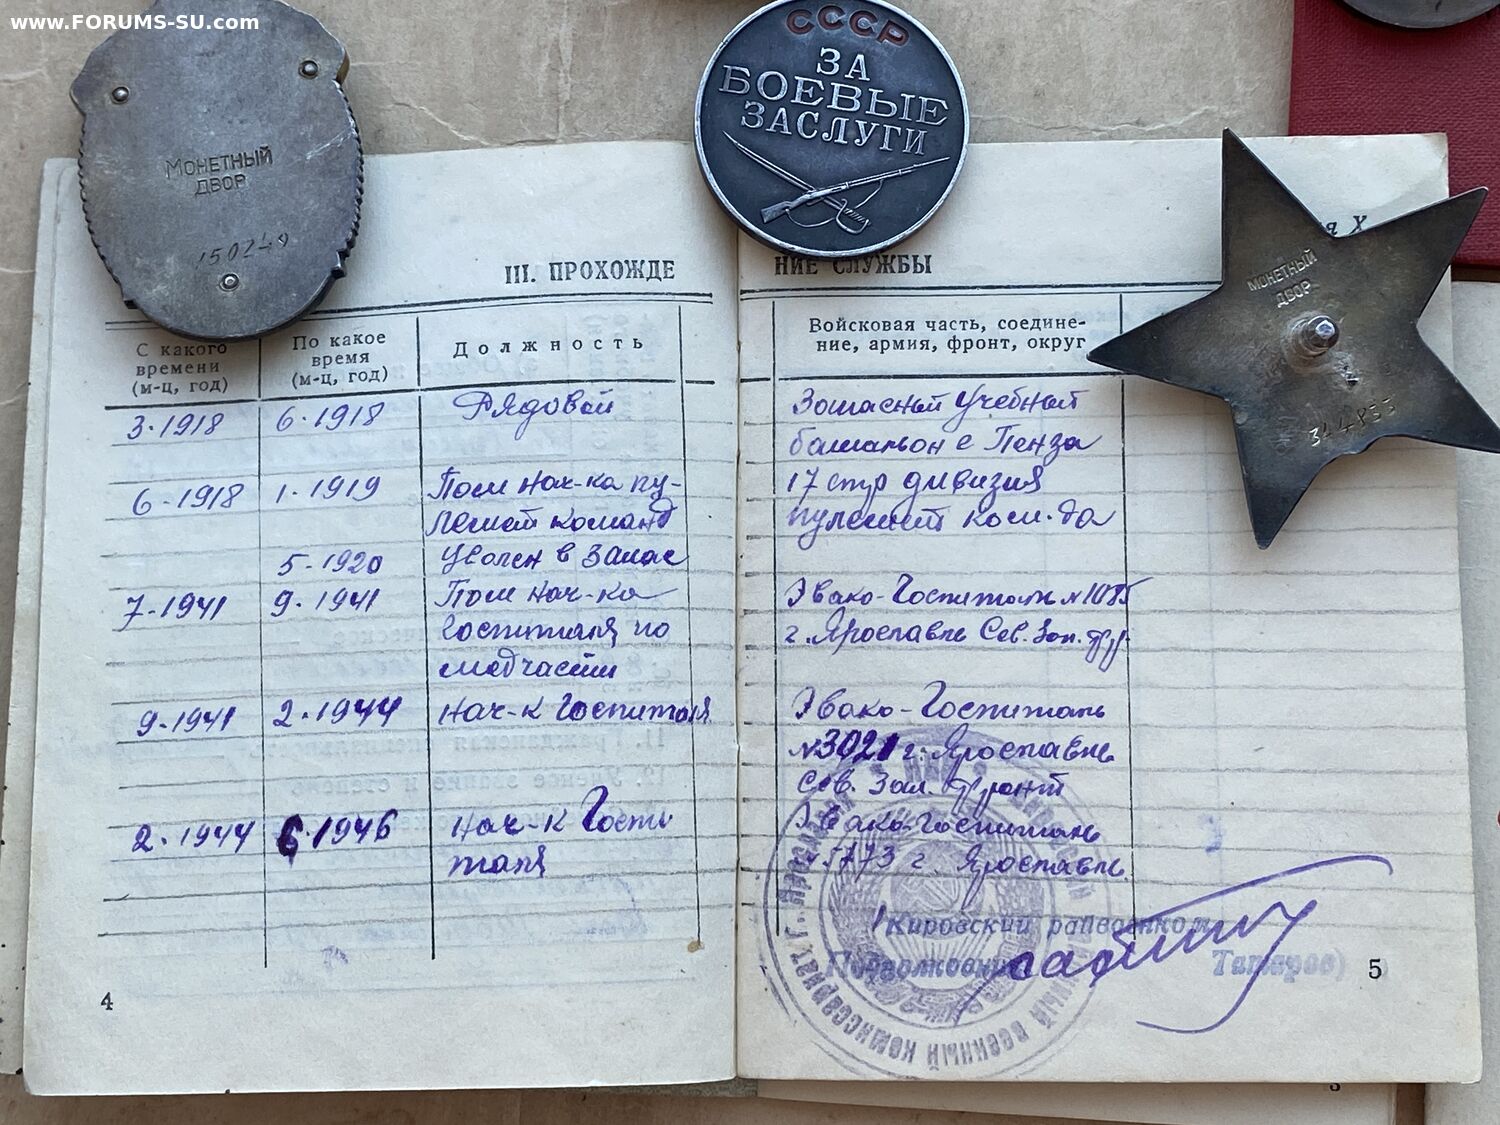 www.FORUMS-SU.com
МОНЕТНЫЙ
ДВОР
150249
СССР
ЗА
БОЕВЫЕ
ЗАСЛУГИ
МОНЕТНЫЙ
ДВОР
344853
III. ПРОХОЖДЕ
НИЕ СЛУЖБЫ
С какого
времени
(м-ц, год)
По какое
время
(м-ц, год)
Должность
Войсковая часть, соедине-
ние, армия, фронт, округ
3-1918 6-1918 Рядовой Запасный Учебный
батальон г. Пенза
6-1918 1-1919 Пом нач-ка пу- 17 стр дивизия
лемет команд пулемет ком-да
5-1920 Уволен в запас
7-1941 9-1941 Пом нач-ка Эвако-Госпиталь №1085
Госпиталя по г. Ярославль Сев. Зап. фр
медчасти
9-1941 2-1944 Нач-к Госпиталя Эвако-Госпиталь
№3021 г. Ярославль
Сев. Зап. Фронт
2-1944 6-1946 Нач-к Госпи Эвако-Госпиталь
таля №5773 г. Ярославль
Кировский райвоенком
Подполковник Татаров)
4
5